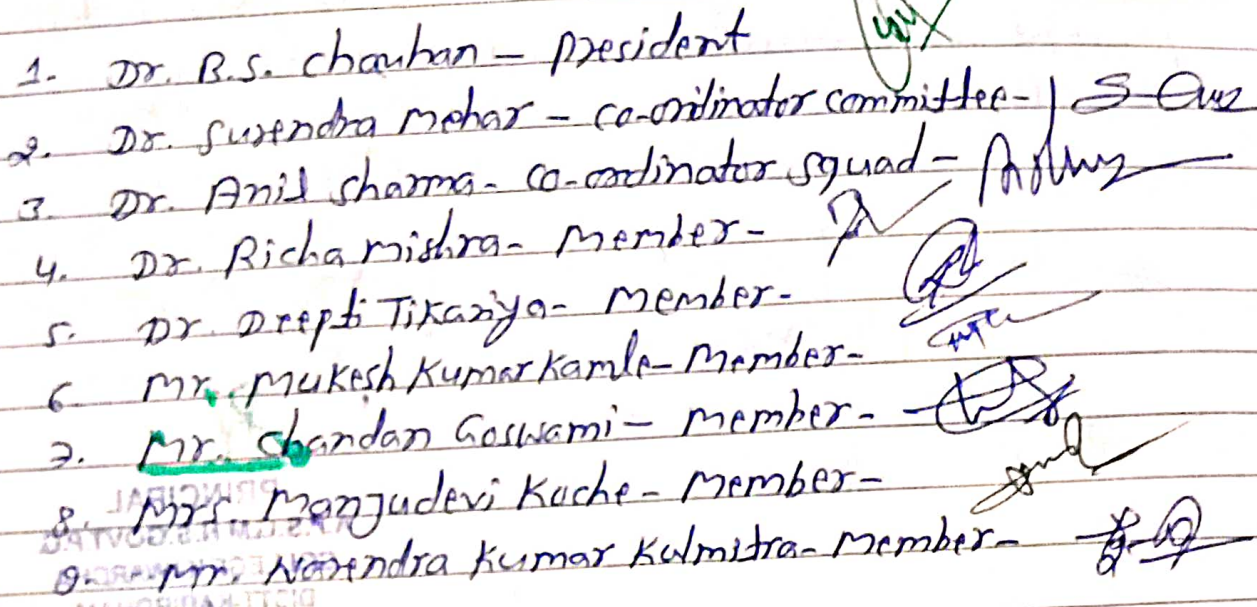 1. Dr. B.S. Chauhan - President
2. Dr. Surendra Mehar - Co-ordinator committee -
3. Dr. Anil Sharma - Co-ordinator squad -
4. Dr. Richa Mishra - Member -
5. Dr. Deepti Tikariya - Member -
6. Mr. Mukesh Kumar Kamle - Member -
7. Mr. Chandan Goswami - Member -
8. Mrs. Manjudevi Kache - Member -
9. Mr. Narendra Kumar Kulmitra - Member -